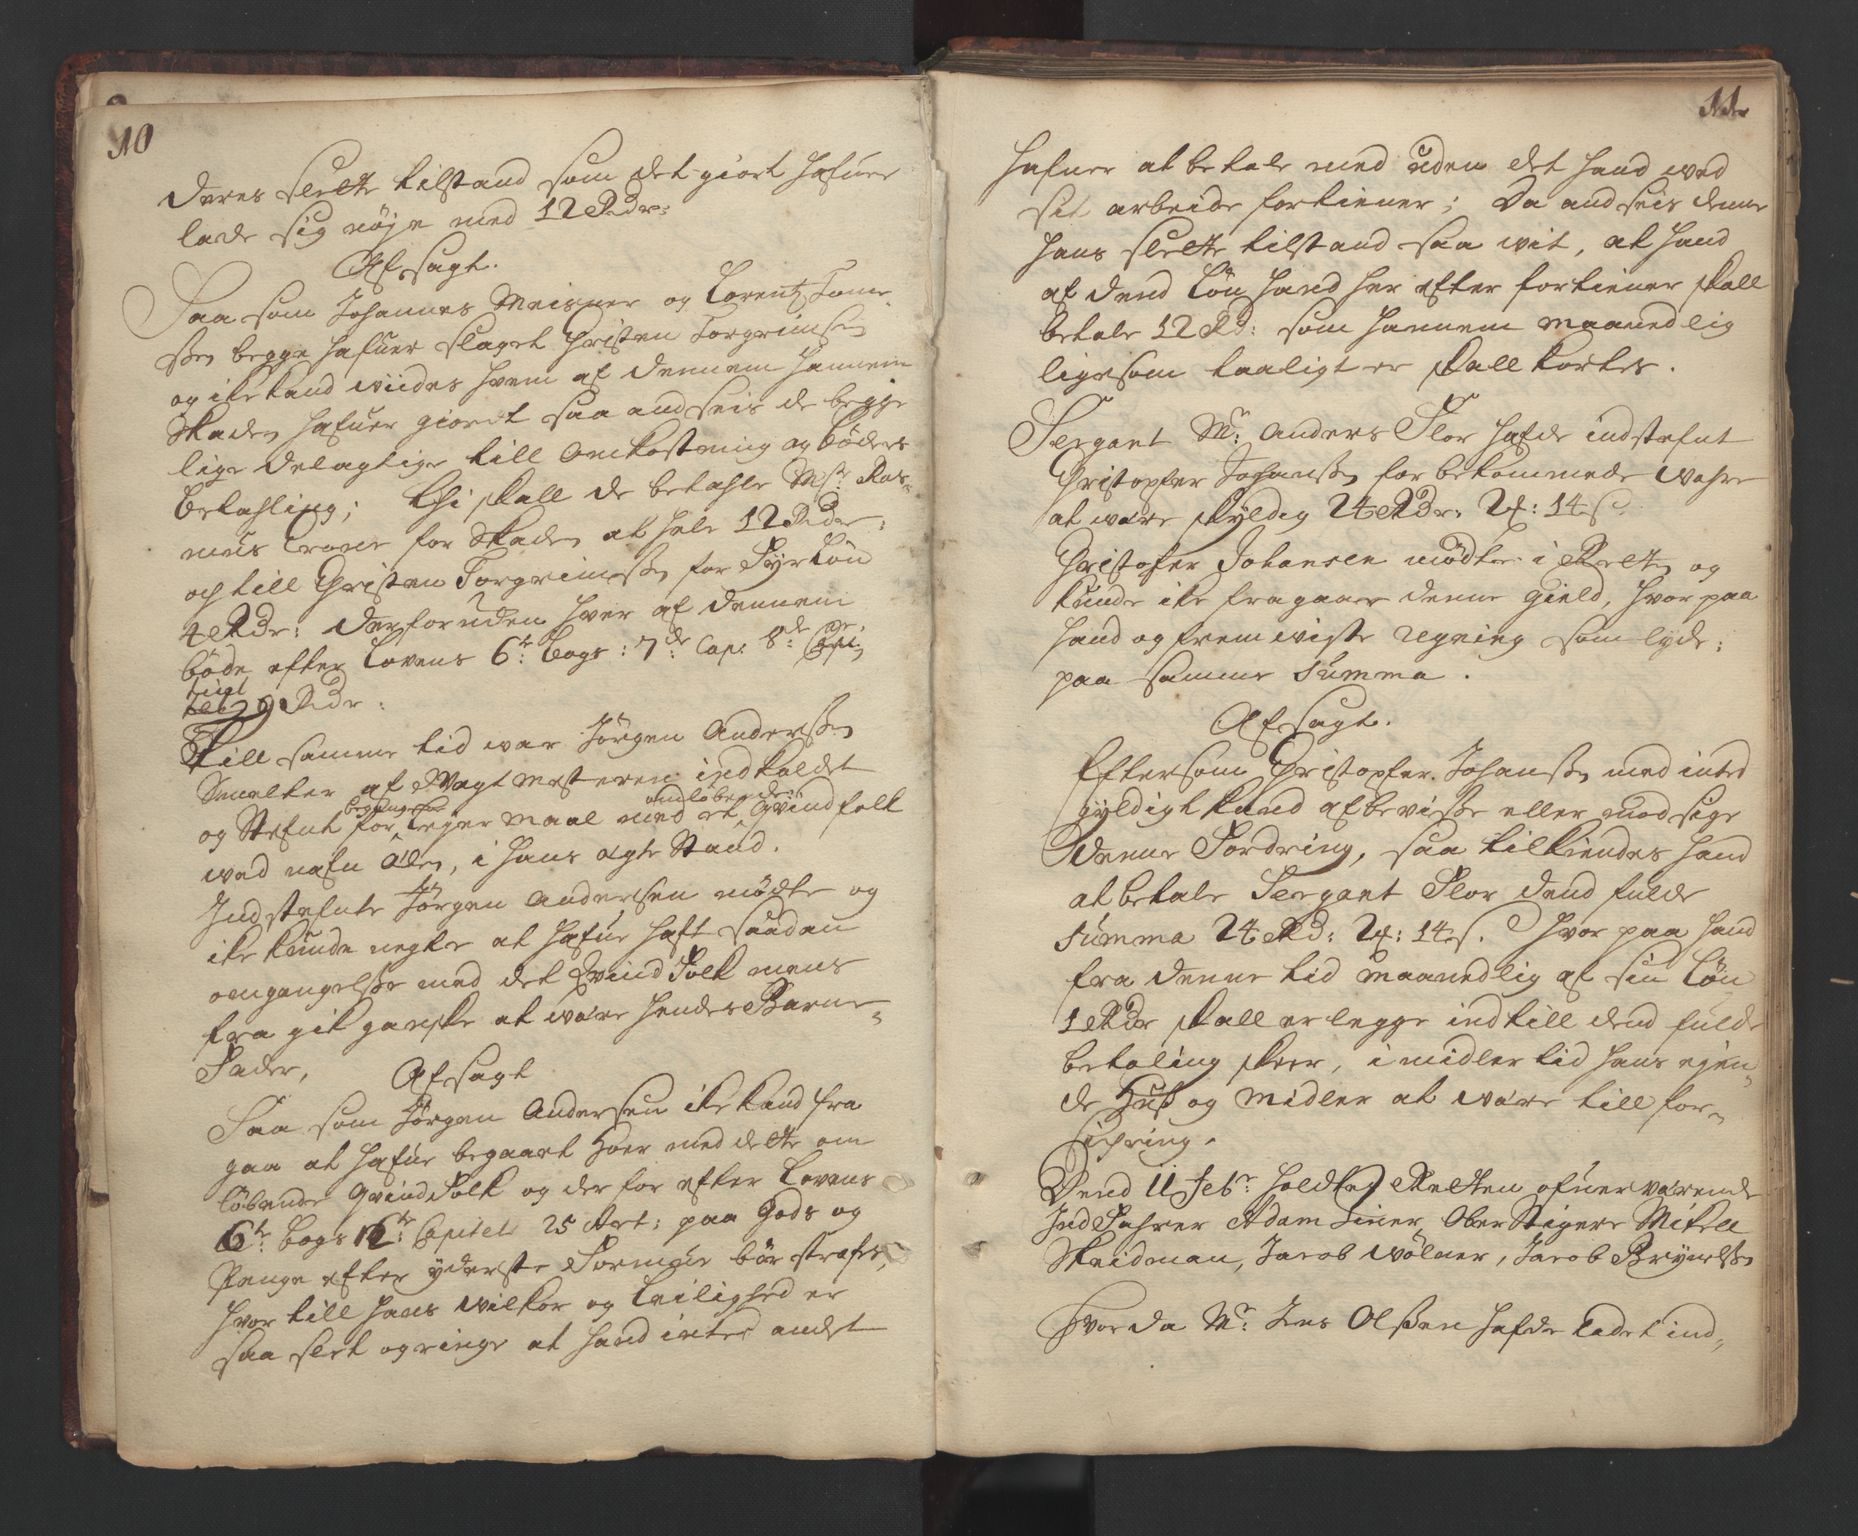 10
deres slette tilstand som det giort hafuer
lade sig nøje med 12 Rdr:
Afsagt.
Saa som Johannes Meisner og Lorentz Tom-
ßen begge hafuer slaget Christen Torgrimsen
og ike kand wiides hvem af dennem hannem
Skaden hafuer giordt saa andseis de begge
lige delagtige till Omkostning og bøders
betahling; Thi skall de betahle Mstr Ras-
mus Crone for Skaden at hele 12 Rdr:
och till Christen Torgrimßen for Syeløn
4 Rdr: derforuden hver af dennem
bøde efter Lovens 6te Bogs: 7de Cap: 8de
9 Rdr:
Till samme tid war Jørgen Anderßen
Smelter af Wagtmesteren indkaldet
og Stefnt for begangen Lejermaal med et omløbende Qvindfolk
wed nafn Ales, i hans ægte Stand.
Indstefnte Jørgen Andersen mødte og
ike kunde negte at hafue haft saadan
omgangelse med det Qvind Folk mens
fra gik ganske at wære hendes Barne-
Fader,
Afsagt
Saa som Jørgen Andersen ike kand fra
gaa at hafue begaaet Hoer med dette om
løbende Qvind Folk og der for efter Lovens
6te Bogs Capitel 25 Art: paa Gods og
Penge efter yderste Formue bør strafes,
hvor till hans wilkor og Leilighed er
saa slet og ringe at hand intet andet
11
hafuer at betale med uden det hand wed
sit arbeide fortiener; Da andseis denne
hans slette tilstand saa wit, at hand
af dend Løn hand her efter fortiener skall
betale 12 Rd: som hannem maanedlig
ligesom taaligt er skall kortes.
Sergant Mr: Anders Flor hafde indstefnt
Christopfer Johanßen for bekommede wahre
at være skyldig 24 Rdr: 2 : 14 s.
Christofer Johansen mødte i Retten og
kunde ike fragaae denne Gield, hvor paa
hand og fremwiste regning som lyde:
paa samme Summa.
Afsagt.
Eftersom Christopfer Johanßen med inted
gyldigt kand afbevisse eller modsige
denne Fordring, saa tilkiendes hand
at betale Sergant Flor dend fulde
Summa 24 Rd: 2 : 14 s. hvor paa hand
fra denne tid maanedlig af sin Løn
1 Rdr skall erlegge indtill dend fulde
betaling skeer, i midler tid hans ejen-
de Huß og midler at være till for-
sichring.
Dend 11 Febr: holdtes Retten ofuerværende
Ind Fahrer Adam Liner, Ober Stigere Mikell
Skeidman, Jacob Wølner, Jacob Brynelßen
Hvor da Mr: Jens Olßen hafde ladet ind-